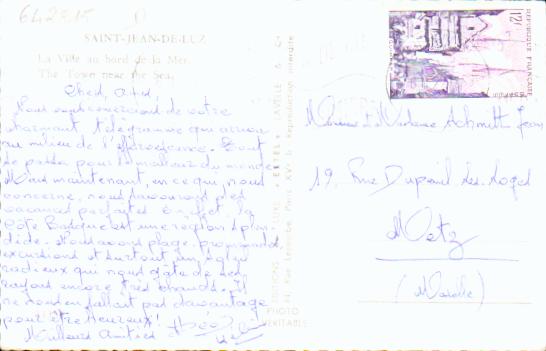 642515
SAINT-JEAN-DE-LUZ
La Ville au bord de la Mer.
The Town near the Sea.
Chers Amis,
Nous vous remercions de votre
charmant télégramme qui arriva
au milieu de l'effervescence. Tout
se passa pour le meilleur du monde
Mais maintenant, en ce qui nous
concerne, nous savourons des
vacances parfaites. En effet, la
Côte Basque est une région splen-
dide. Nous avons plage, promenades,
excursions et surtout un soleil
radieux qui nous gâte de ses
rayons encore très chauds. Il
ne nous en fallait pas davantage
pour être heureux!
Meilleures Amitiés
PHOTO
VÉRITABLE
Reproduction interdite
12F
REPUBLIQUE FRANÇAISE
Monsieur et Madame Schmitt Jean
19, Rue Dupont des Loges
Metz
(Moselle)